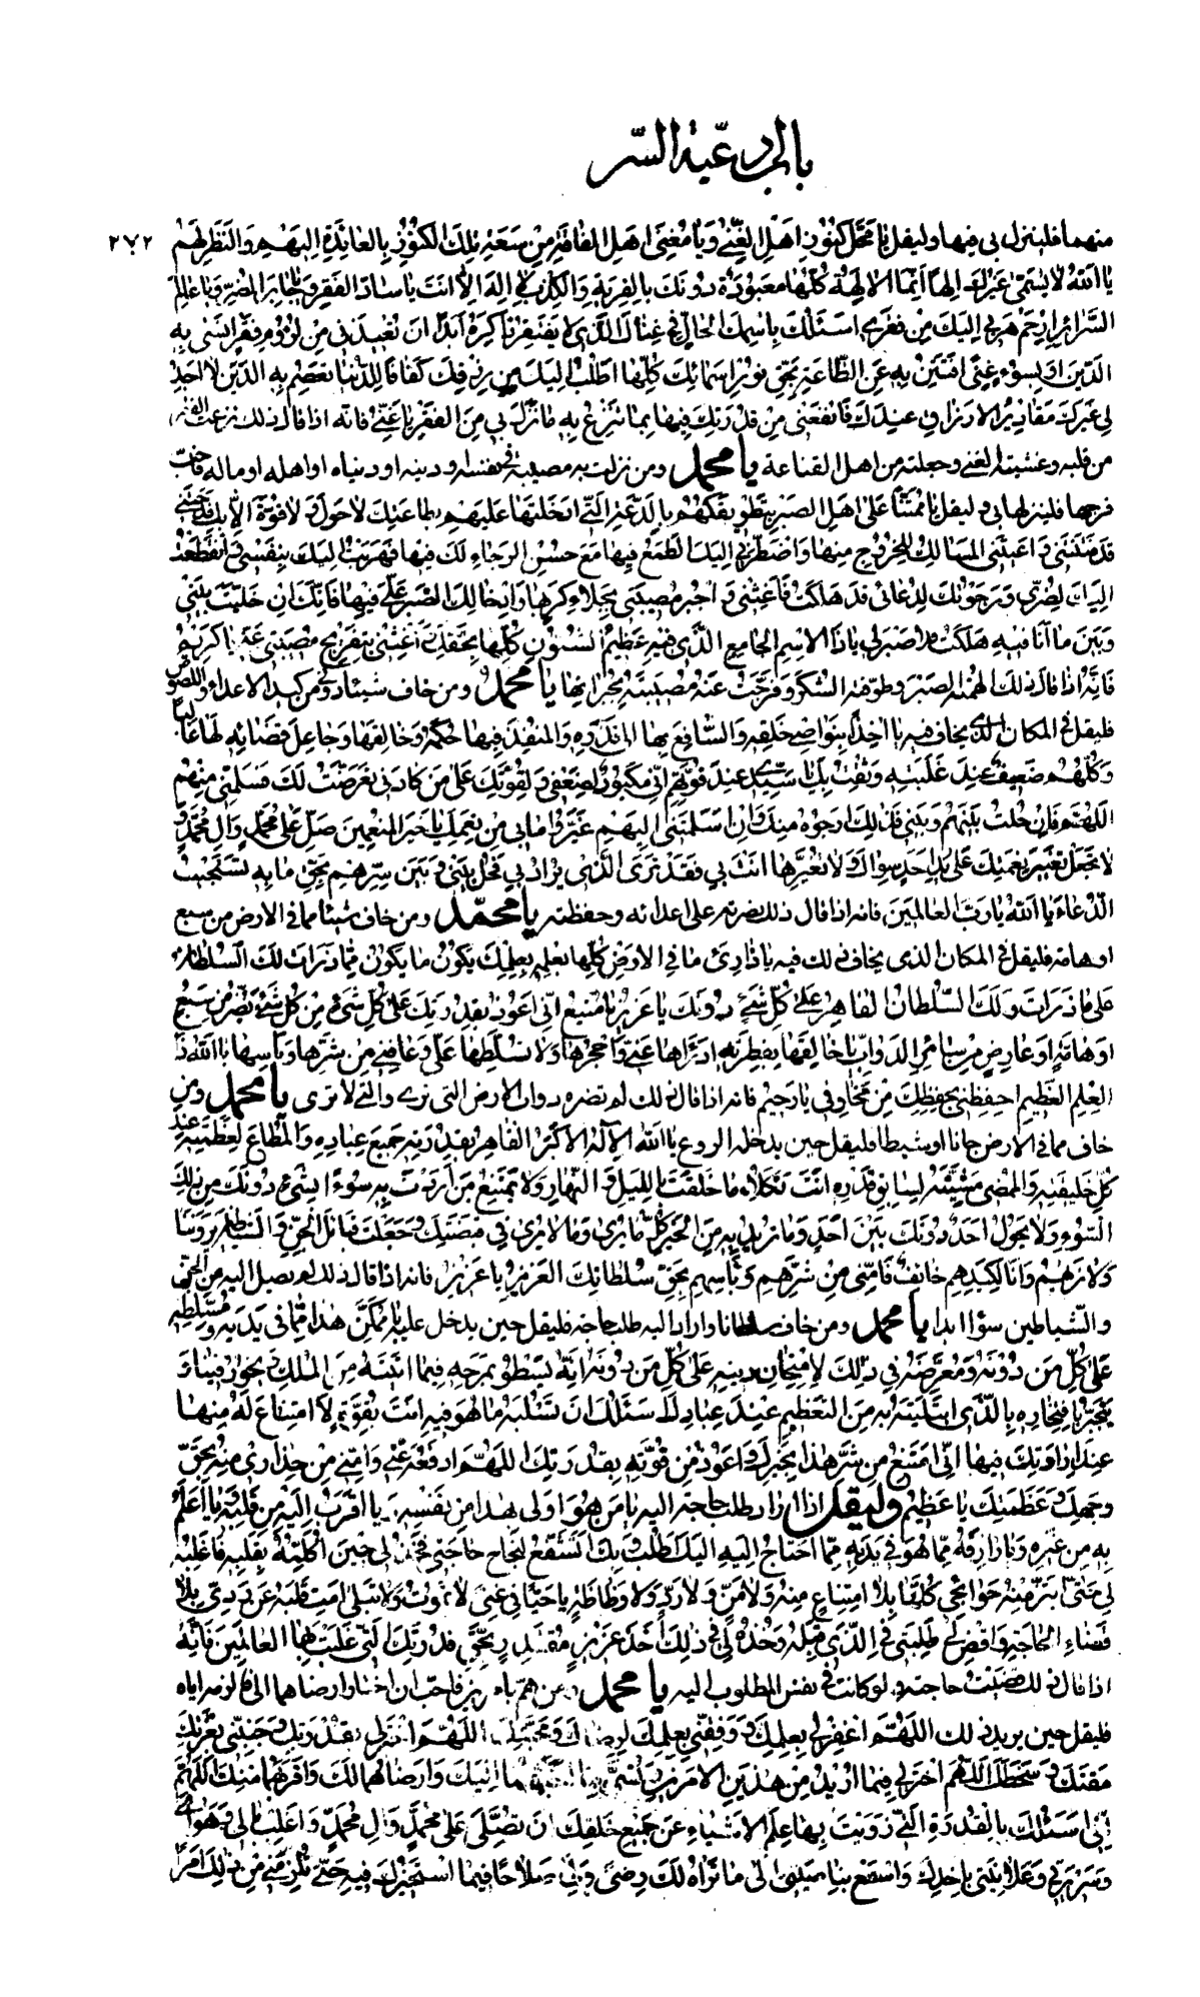 باب ادعية السر
٢٧٢
منهما فلينزل بي فيها وليقل يا محل كنوز اهل الغنى ويا مغني اهل الفاقة من سعة تلك الكنوز بالعائدة اليهم والنظر لهم
يا الله لا يسمى غيرك الها انما الالهة كلها معبودة دونك بالفرية والكذب لا اله الا انت يا ساد الفقر ويا جابر الضر ويا عالم
السرائر ارحم هربي اليك من فقري اسئلك باسمك الحال في غناك الذي لا يفتقر ذاكره ابدا ان تعيذني من لزوم فقر انسى به
الدين او بسوء غنى افتتن به عن الطاعة بحق نور اسمائك كلها اطلب اليك من رزقك كفافا للدنيا تعصم به الدين لا اجد
لي غيرك مقادير الارزاق عندك فانفعني من قدرتك فيها بما تنزع به ما نزل بي من الفقر يا غني فانه اذا قال ذلك نزعت الفقر
من قلبه وغشيته الغنى وجعلته من اهل القناعة يا محمد ومن نزلت به مصيبة في نفسه او دينه او دنياه او اهله او ماله فاحب
فرجها فلينزلها بي وليقل يا ممتنا على اهل الصبر بتطويقكهم بالدعة التي ادخلتها عليهم بطاعتك لا حول ولا قوة الا بك
قد فتنتني واعيتني المسالك للخروج منها واضطرني اليك الطمع فيها مع حسن الرجاء لك فيها فهربت اليك بنفسي وانقطعت
اليك لضري ورجوتك لدعائي قد هلكت فاغثني واجبر مصيبتي بجلاء كربها وادخالك الصبر علي فيها فانك ان خليت بيني
وبين ما انا فيه هلكت فلا صبر لي يا ذا الاسم الجامع الذي فيه عظيم الشئون كلها بحقك اغثني بتفريج مصيبتي عني يا كريم
فانه اذا قال ذلك الهمته الصبر وطوقته الشكر وفرجت عنه مصيبته بجبرانها يا محمد ومن خاف شيئا دوني من كيد الاعداء واللصوص
فليقل في المكان الذي يخاف فيه يا اخذا بنواصي خلقه والسافع بها الى قدره والمنفذ فيها حكمه وخالقها وجاعل قضائه لها غالبا
وكلهم ضعيف عند غلبته وثقت بك يا سيدي عند قوتهم اني مكبود لضعفي ولقوتك على من كادني تعرضت لك فسلمني منهم
اللهم فان حلت بينهم وبيني فذلك ارجوه منك وان اسلمتني اليهم غيروا ما بي من نعمك يا خير المنعمين صل على محمد وال محمد و
لا تجعل تغيير نعمتك على يد احد سواك ولا تغيرها انت بي فقد ترى الذي يراد بي فحل بيني وبين سرهم بحق ما به تستجيب
الدعاء يا الله يا رب العالمين فانه اذا قال ذلك نصرته على اعدائه وحفظته يا محمد ومن خاف شيئا مما في الارض من سبع
او هامة فليقل في المكان الذي يخاف ذلك فيه يا ذارئ ما في الارض كلها بعلمه بعلمك يكون ما يكون مما ذرات لك السلطان
على ما ذرات ولك السلطان القاهر على كل شئ دونك يا عزيز يا منيع اني اعوذ بقدرتك على كل شئ من كل شئ يضر من سبع
او هامة او عارض من سائر الدواب يا خالقها بفطرته ادراها عني واحجزها ولا تسلطها علي وعافني من شرها وباسها يا الله ذا
العلم العظيم احفظني بحفظك من مخاوفي يا رحيم فانه اذا قال ذلك لم تضره دواب الارض التي ترى والتي لا ترى يا محمد ومن
خاف مما في الارض جانا او شيطانا فليقل حين يدخله الروع يا الله الاله الاكبر القاهر بقدرته جميع عباده والمطاع لعظمته عند
كل خليقته والممضى مشيته لسابق قدره انت تكلاء ما خلقت بالليل والنهار ولا يمتنع من اردت به سوءا بشئ دونك من ذلك
السوء ولا يحول احد دونك بين احد وما تريد به من الخير كل ما يرى وما لا يرى في قبضتك وجعلت قبائل الجن والشياطين يروننا
ولا نريهم وانا لكيدهم خائف فامني من شرهم وباسهم بحق سلطانك العزيز يا عزيز فانه اذا قال ذلك لم يصل اليه من الجن
والشياطين سوء ابدا يا محمد ومن خاف سلطانا او اراد اليه طلب حاجة فليقل حين يدخل عليه يا ممكن هذا مما في يديه ومسلطه
على كل من دونه ومعرضه في ذلك لامتحان دينه على كل من دونه انه يسطو بمرحه فيما اتيته من الملك ويجور فينا و
يتجبر بافتخاره بالذي ابتليته به من التعظيم عند عبادك اسئلك ان تسلبه ما هو فيه انت بقوة لا امتناع له منها
عند ارادتك فيها اني امتنع من شر هذا بخيرك واعوذ من قوته بقدرتك اللهم ادفعه عني وامني من حذاري منه بحق
وجهك وعظمتك يا عظيم وليقل اذا اراد طلب حاجة اليه يا من هو اولى بهذا من نفسه ويا اقرب اليه من قلبه ويا اعلم
به من غيره ويا رازقه مما هو في يديه مما احتاج اليه اليك اطلب وبك اتشفع لنجاح حاجتي فخذ لي حين اكلمه بقلبه فاغلبه
لي حتى ابتز منه حوائجي كلها بلا امتناع منه ولا من ولا رد ولا فظاظة يا حيا في غنى لا يموت ولا يبلى امت قلبه عن ردي بلا
قضاء الحاجة واقض لي طلبتي في الذي قبله وخذه لي في ذلك اخذ عزيز مقتدر بحق قدرتك التي غلبت بها العالمين فانه
اذا قال ذلك قضيت حاجته ولو كانت في نفس المطلوب اليه يا محمد ومن هم بامرين فاحب ان اختار ارضاهما الي فالزمه اياه
فليقل حين يريد ذلك اللهم اختر لي بعلمك ووفقني بعلمك لرضاك ومحبتك اللهم اختر لي بقدرتك وجنبني بعزتك
مقتك وسخطك اللهم اختر لي فيما اريد من هذين الامرين وتسميهما اليك وارضاهما لك واقربهما منك اللهم
اني اسئلك بالقدرة التي زويت بها علم الاشياء عن جميع خلقك ان تصلي على محمد وال محمد واغلب بالي وهواي
وسريرتي وعلانيتي باخذك واسفع بناصيتي الى ما تراه لك رضى ولي صلاحا فيما استخيرك فيه حتى تلزمني من ذلك امرا